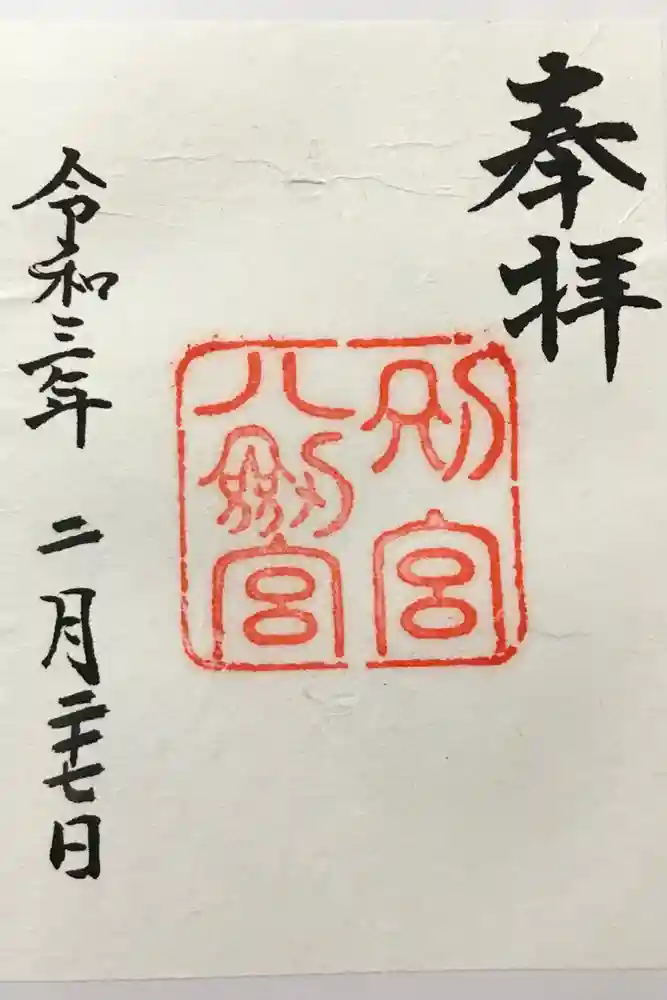 奉拝
別宮
八剱宮
令和三年 二月二十七日